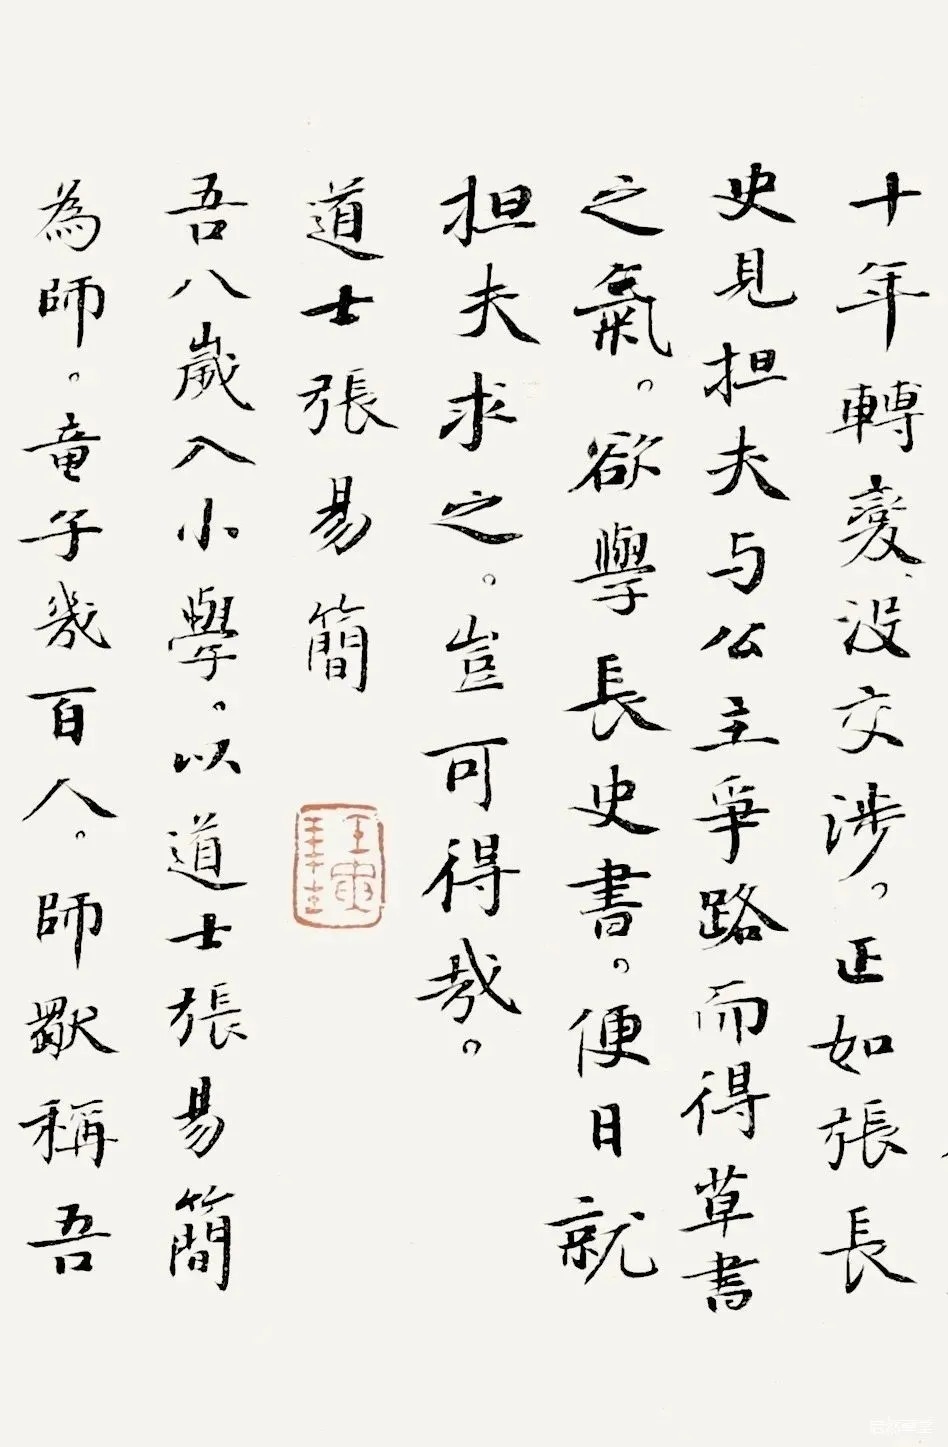 十年轉變、没交涉。正如張長
史見担夫与公主爭路而得草書
之氣。欲學長史書。便日就
担夫求之。豈可得哉。
道士張易簡
吾八歲入小學。以道士張易簡
為師。童子幾百人。師獸稱吾